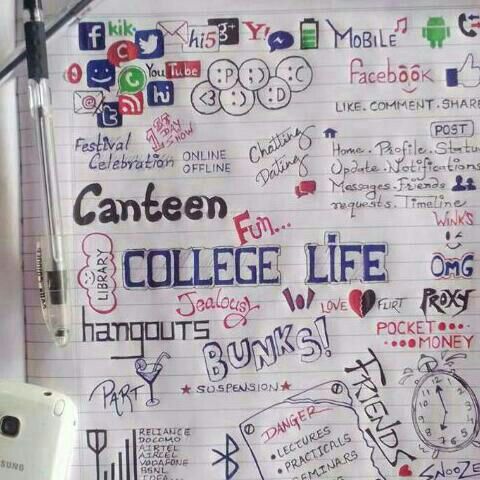 f kik hi5 g+ Y! MOBILE
YouTube hi
:P :) :C
<3 ;) :D
Facebook
LIKE. COMMENT. SHARE
1ST DAY SHOW
Festival
Celebration
ONLINE
OFFLINE
Chatting
Dating
POST
Home. Profile. Statu
Update. Notifications
Messages. Friends
requests. Timeline
Canteen
Fun...
WINKS
LIBRARY
COLLEGE LIFE
OMG
Jealousy
LOVE FLIRT
PROXY
hangouts
BUNKS!
POCKET
MONEY
PARTY
SUSPENSION
FRIENDS
DANGER
• LECTURES
• PRACTICALS
SEMINARS
RELIANCE
DOCOMO
AIRTEL
AIRCEL
VODAFONE
BSNL
IDEA
SNOOZE
SAMSUNG